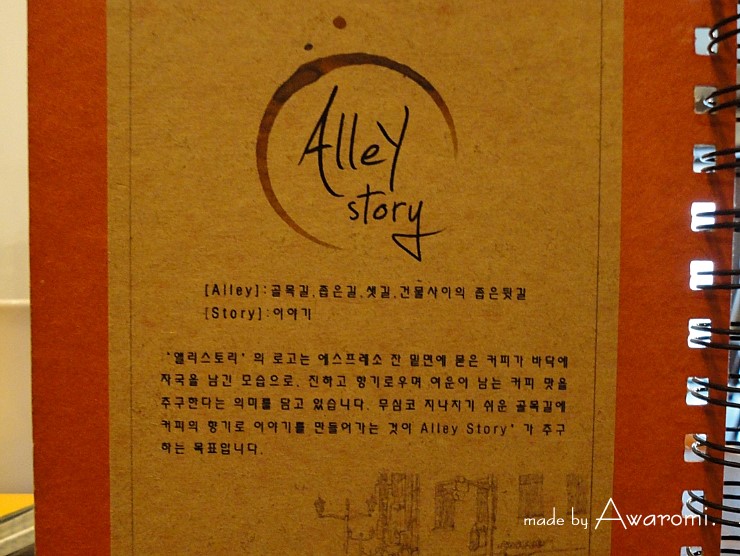 Alley
story
[Alley]:골목길,좁은길,샛길,건물사이의 좁은뒷길
[Story]:이야기
'앨리스토리' 의 로고는 에스프레소 잔 밑면에 묻은 커피가 바닥에
자국을 남긴 모습으로, 진하고 향기로우며 여운이 남는 커피 맛을
추구한다는 의미를 담고 있습니다. 무심코 지나치기 쉬운 골목길에
커피의 향기로 이야기를 만들어가는 것이 Alley Story' 가 추구
하는 목표입니다.
made by Awaromi.